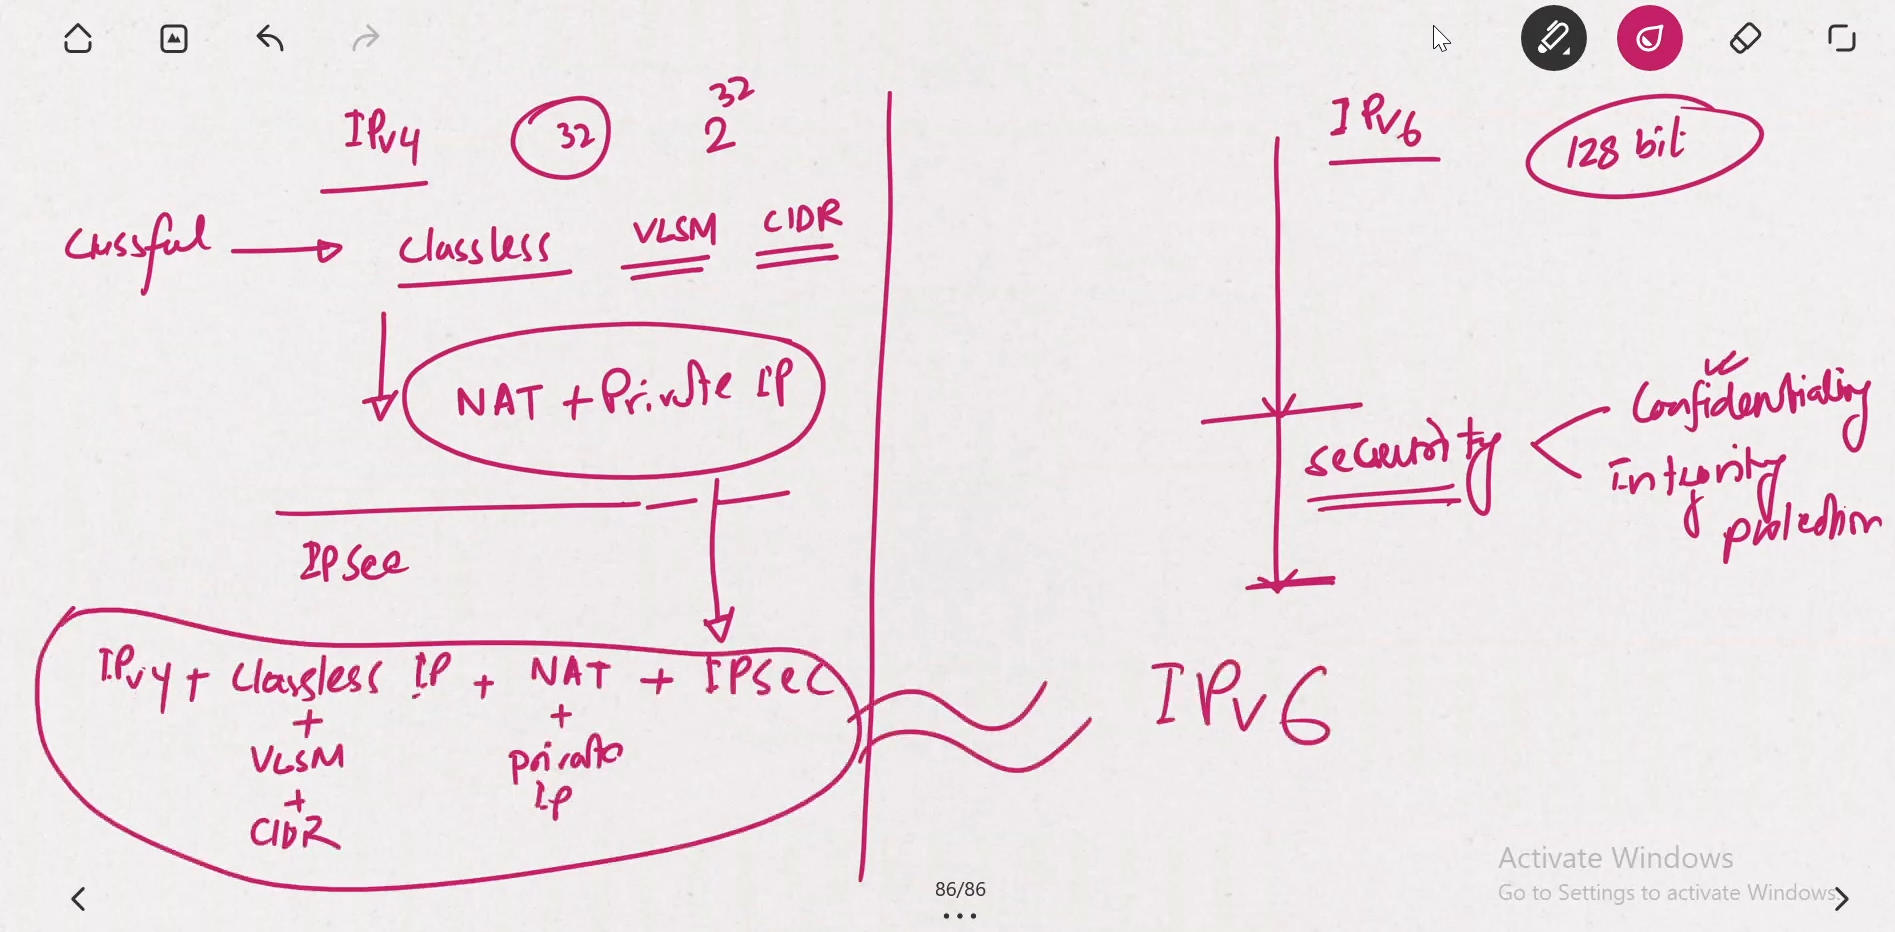 IPv4 32 2^32
Classful → Classless VLSM CIDR
NAT + Private IP
IPSec
IPv4 + Classless IP + NAT + IPSec
+ +
VLSM Private
+ IP
CIDR
IPv6 128 bit
Security
Confidentiality
Integrity
protection
IPv6
86/86
Activate Windows
Go to Settings to activate Windows.